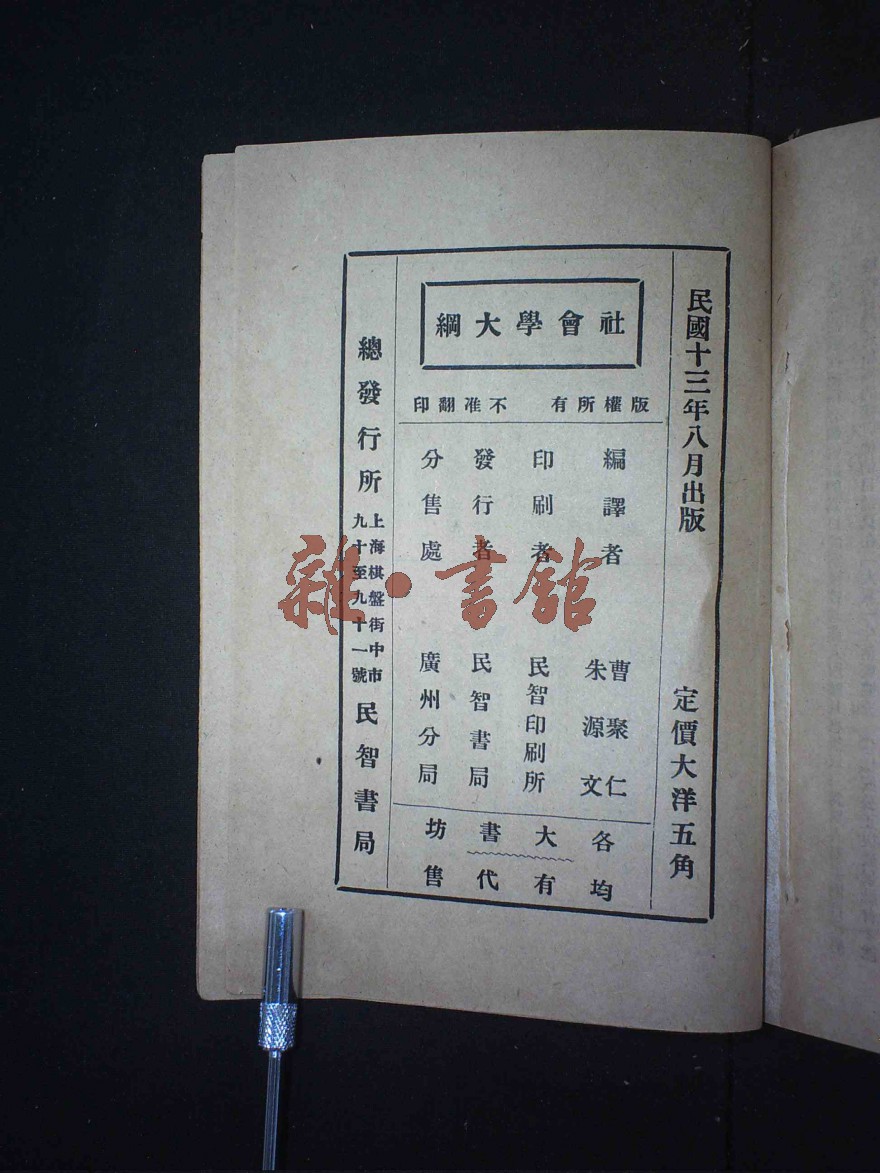 民國十三年八月出版
定價大洋五角
社會學大綱
版權所有 不准翻印
編譯者 曹聚仁 朱源文
印刷者 民智印刷所
發行者 民智書局
分售處 廣州分局
各大書坊
均有代售
總發行所 上海棋盤街中市九十至九十一號 民智書局
雜·書館